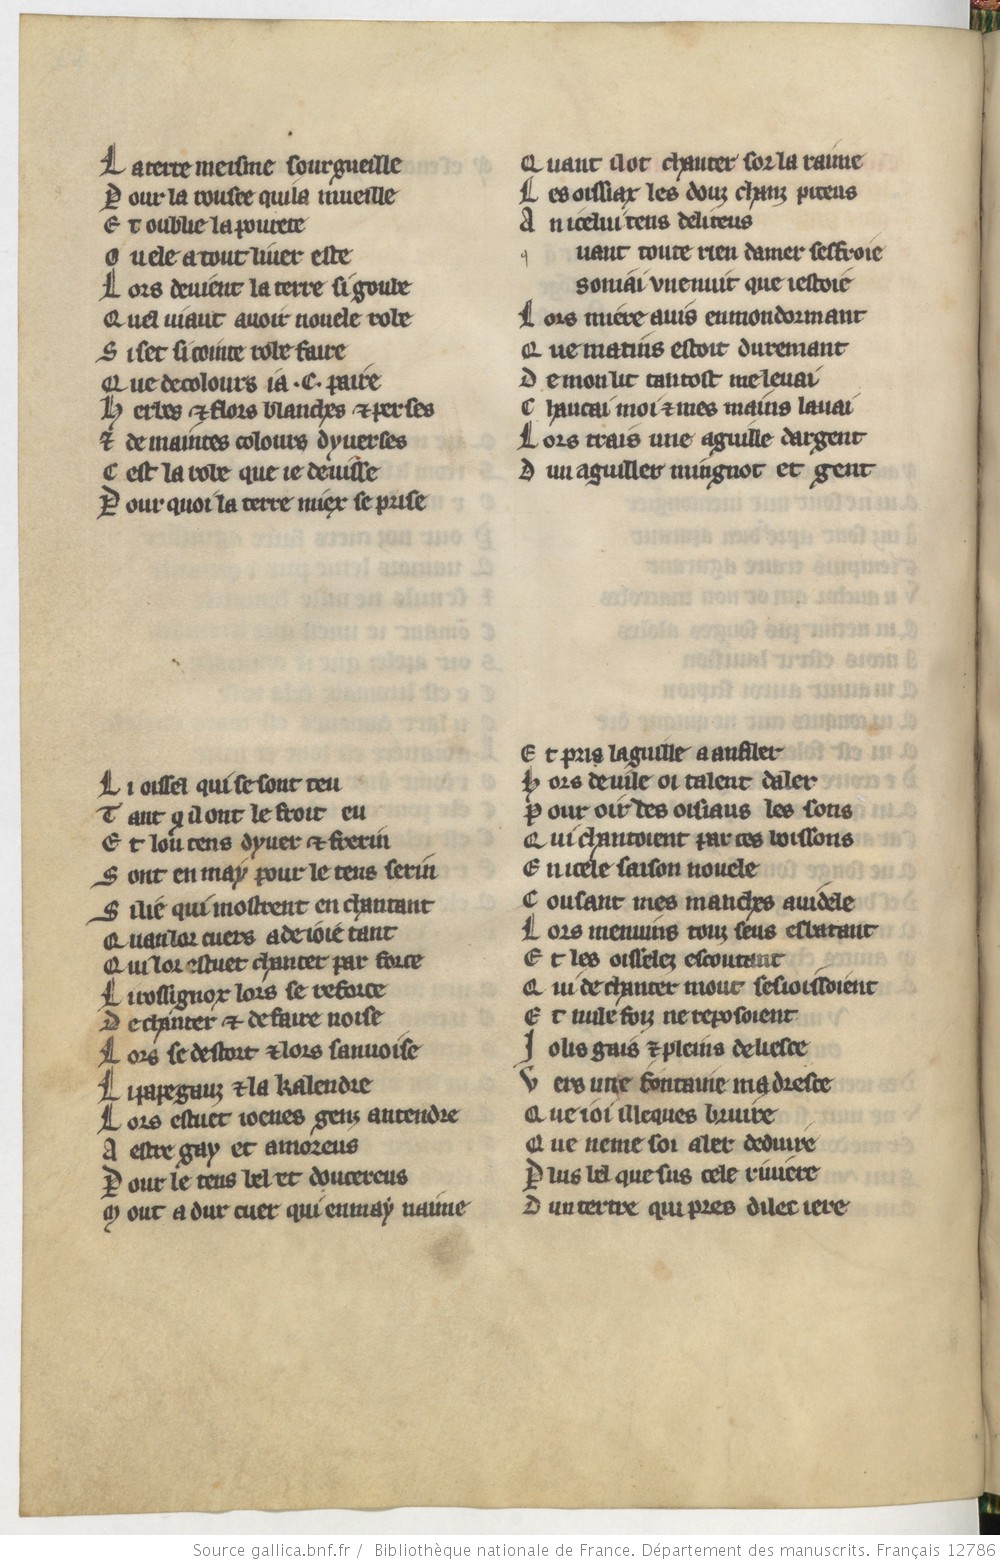 La terre meisme sourgueille
Pour la rousee qui la mueille
Et oublie la pourete
Ou ele a tout liuer este
Lors deuient la terre si goube
Quel uiaut auoir nouele robe
Si set si cointe robe faire
Que de colours ia .C. paire
Herbes ⁊ flors blanches ⁊ perses
⁊ de maintes colours dyuerses
Cest la robe que ie deuisse
Pour quoi la terre miex se prise
Li oissel qui se sont teu
Tant qil ont le froit eu
Et lou tens dyuer ⁊ frerin
Sont en may pour le tens serin
Si lié qui mostrent en chantant
Quan lor cuers a de ioie tant
Qui lor estuet chanter par force
Li rossignox lors se reforce
De chanter ⁊ de faire noise
Lors se destort ⁊ lors sanuoise
Li papegauz ⁊ la kalendre
Lors estuet ioenes genz antendre
A estre gay et amoreus
Pour le tens bel et doucereus
Mout a dur cuer qui en may naime
Quant il ot chanter sor la raime
Les oissiax les douz chanz piteus
An icelui tens deliteus
q uant toute rien damer seffroie
soniai vne nuit que iestoie
Lors miere auis en mon dormant
Que matins estoit duremant
De mon lit tantost me leuai
Chaucai moi ⁊ mes mains lauai
Lors trais une aguille dargent
Dun aguiller mingnot et gent
Et pris laguille a anfiler
Hors de uile oi talent daler
Pour oir des oisiaus les sons
Qui chantoient par ces boissons
En icele saison nouele
Cousant mes manches a uidele
Lors men uins touz seus esbatant
Et les oisselez escoutant
Qui de chanter mout sesioissoient
Et nule foiz ne reposoient
Jolis gais ⁊ pleins de liesce
Vers une fontaine madresce
Que ioi illeques bruire
Que neme soi aler deduire
Plus bel que sus cele riuiere
Dun tertre qui pres dilec iere
Source gallica.bnf.fr / Bibliothèque nationale de France. Département des manuscrits. Français 12786